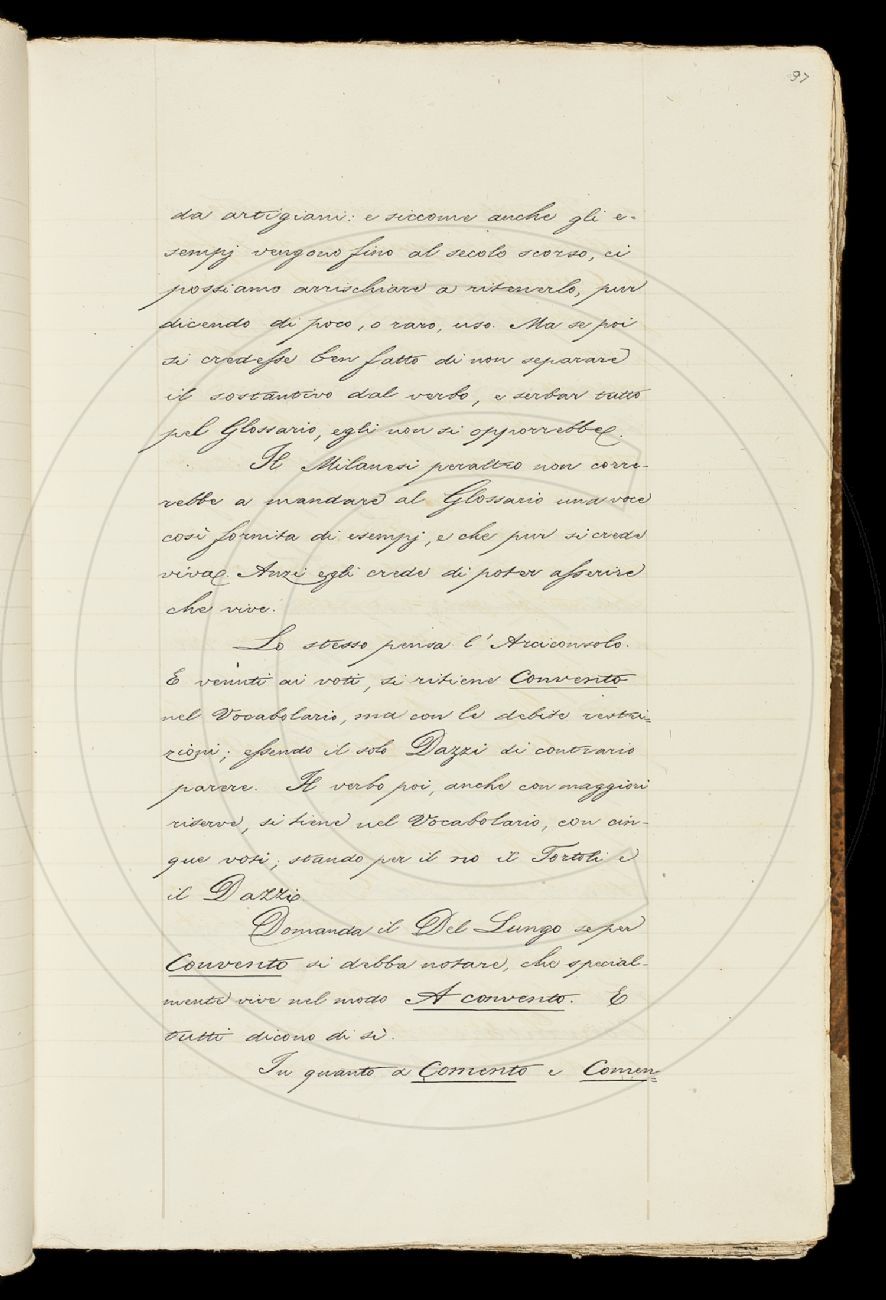 97
da artigiani: e siccome anche gli e-
sempj vengono fino al secolo scorso, ci
possiamo arrischiare a ritenerlo, pur
dicendo di poco, o raro, uso. Ma se poi
si credesse ben fatto di non separare
il sostantivo dal verbo, e serbar tutto
pel Glossario, egli non si opporrebbe.
Il Milanesi peraltro non corre-
rebbe a mandare al Glossario una voce
così fornita di esempj, e che pur si crede
viva. Anzi egli crede di poter asserire
che vive.
Lo stesso pensa l'Arciconsolo.
E venuti ai voti, si ritiene Convento
nel Vocabolario, ma con le debite restri=
zioni; essendo il solo Dazzi di contrario
parere. Il verbo poi, anche con maggiori
riserve, si tiene nel Vocabolario, con cin-
que voti; stando per il no il Tortoli e
il Dazzi.
Domanda il Del Lungo se per
Convento si debba notare, che special-
mente vive nel modo A convento. E
tutti dicono di sì.
In quanto a Comento e Comen=